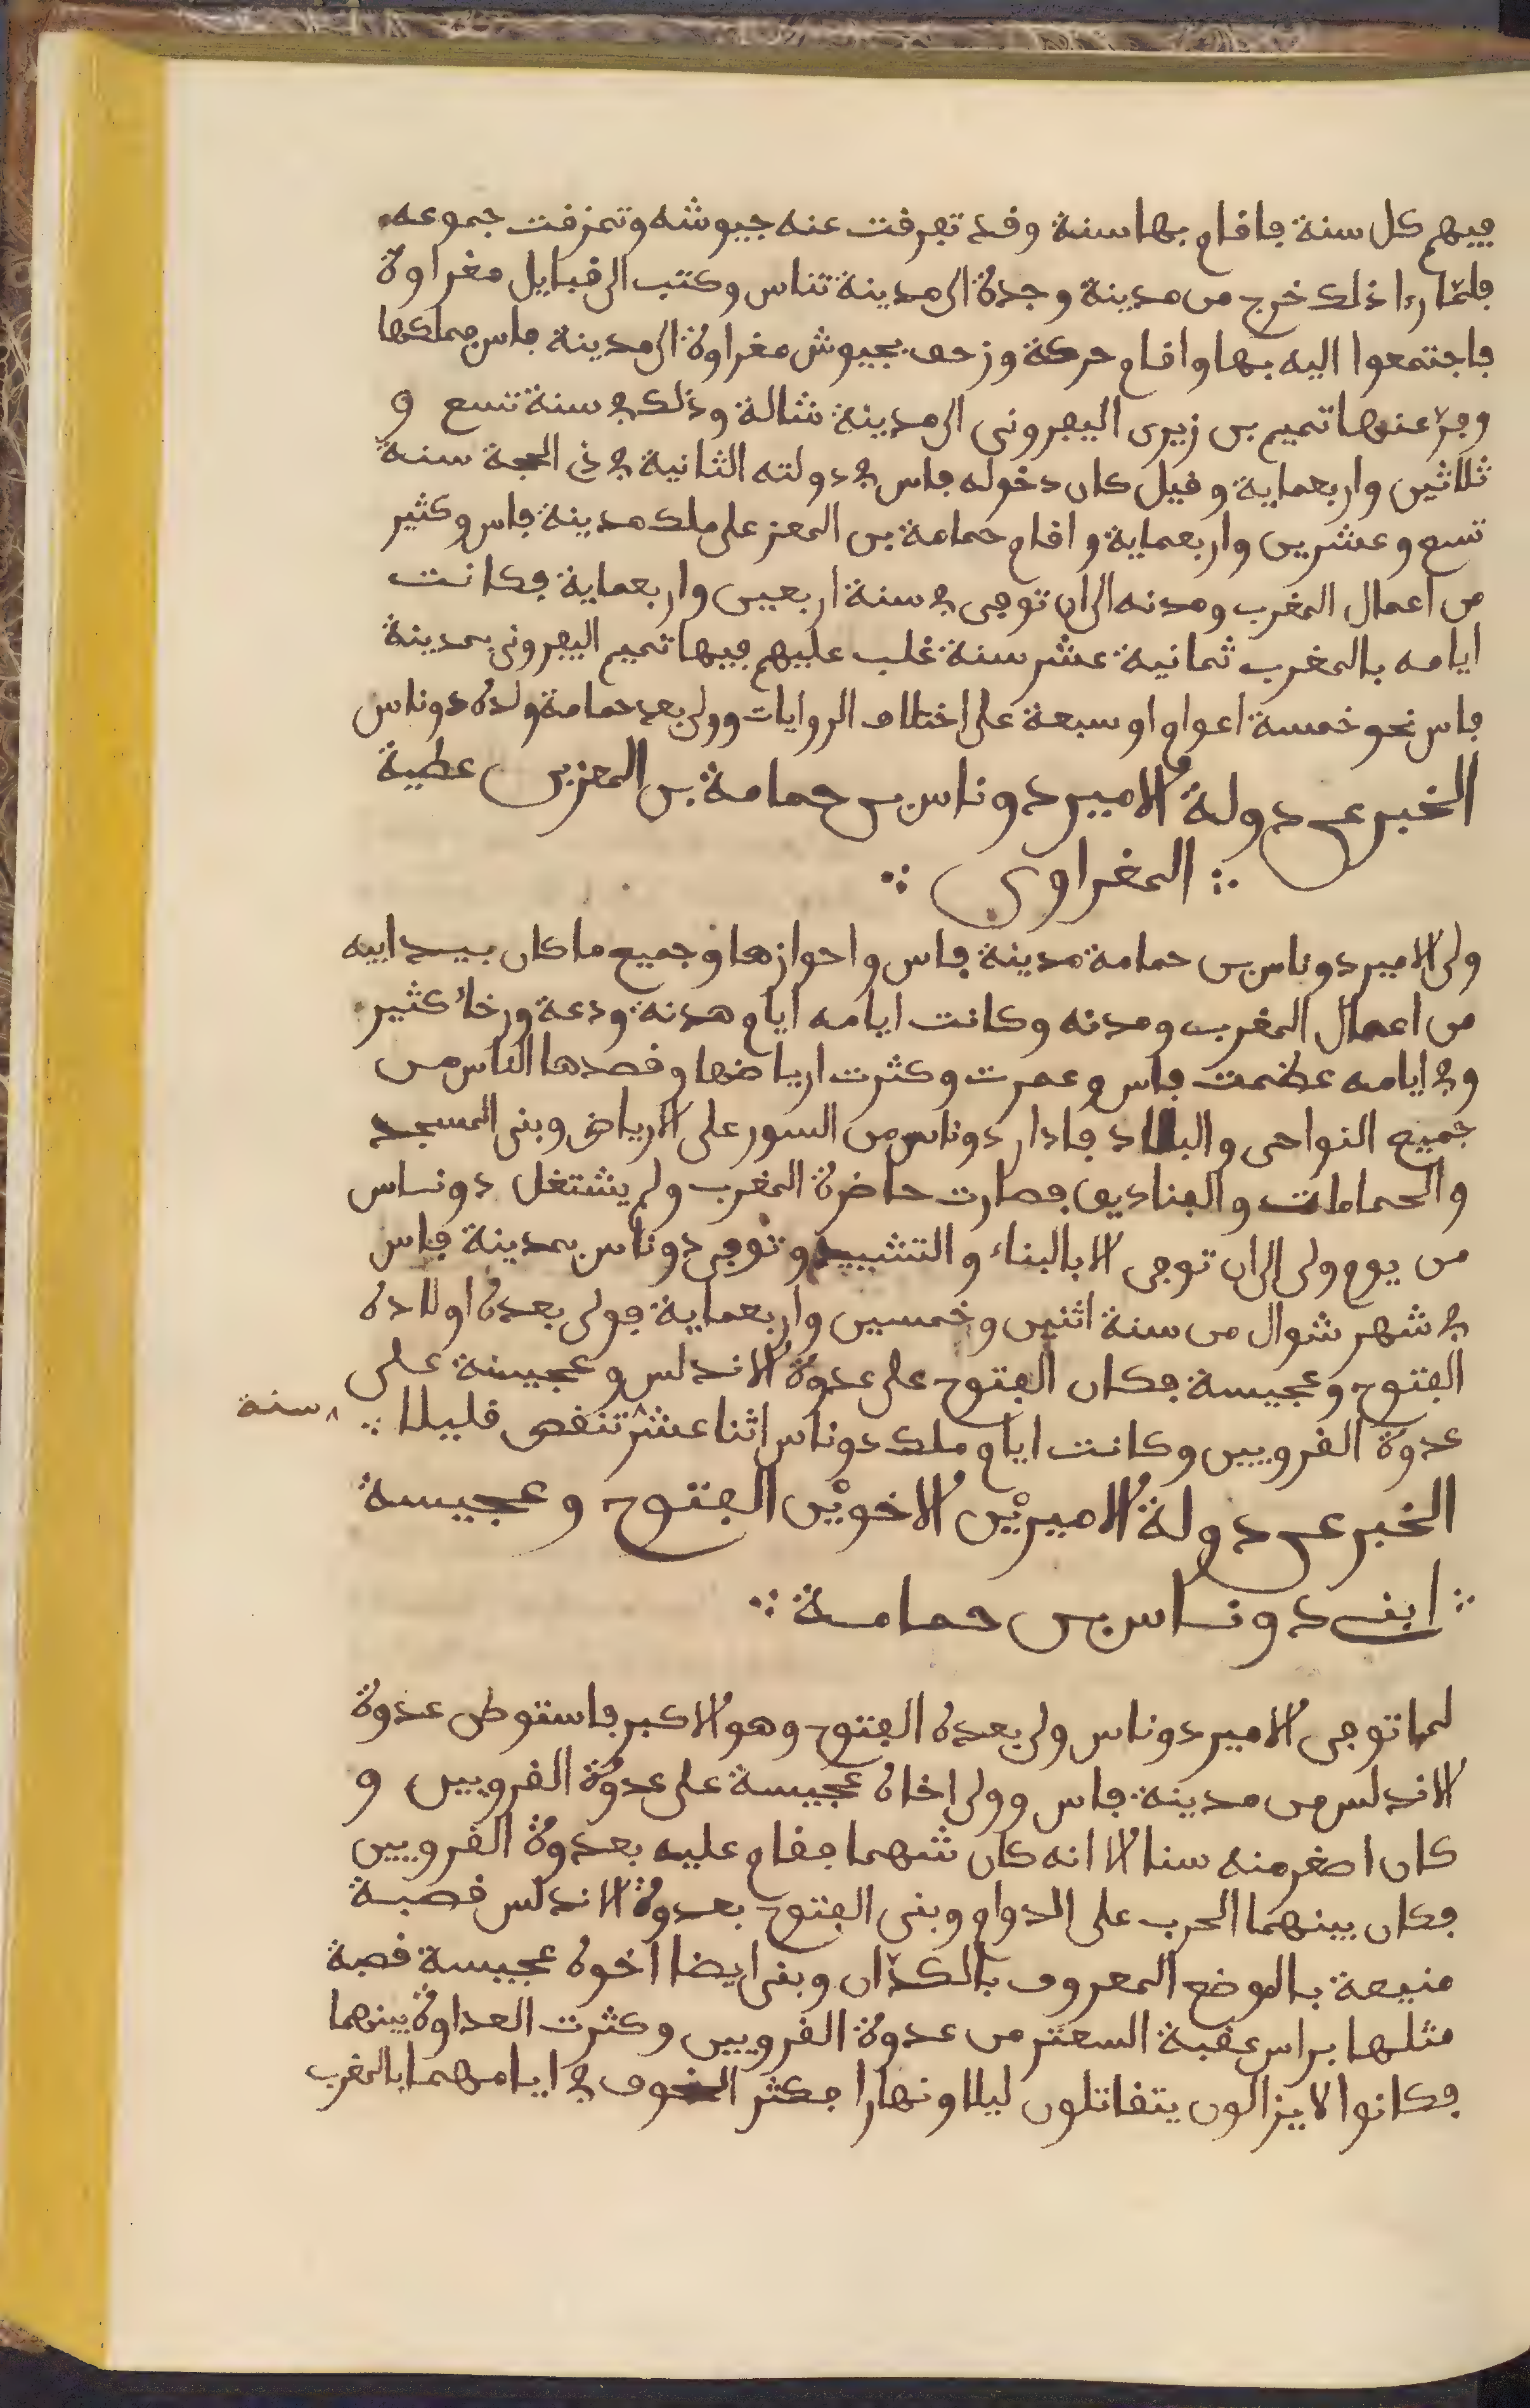 فيهم كل سنة فاقام بها سنة وقد تفرقت عنه جيوشه وتمزقت جموعه
فلمّا رءا ذلك خرج من مدينة وجدة الى مدينة تناس وكتب الى قبايل مغراوة
فاجتمعوا اليه بها واقام حركة وزحف بجيوش مغراوة الى مدينة فاس فملكها
وفرّ عنها تميم بن زيرى اليفرونى الى مدينة شالة وذلك في سنة تسع و
ثلاثين واربعماية وقيل كان دخوله فاس في دولته الثانية في ذى الحجة سنة
تسع وعشرين واربعماية واقام حمامة بن المعز على ملك مدينة فاس وكثير
من اعمال المغرب ومدنه الى ان توفى في سنة اربعين واربعماية فكانت
ايامه بالمغرب ثمانية عشر سنة غلب عليهم فيها تميم اليفرونى بمدينة
فاس نحو خمسة اعوام او سبعة على اختلاف الروايات وولى بعد حمامة ولده دوناس
الخبر عن دولة الامير دوناس بن حمامة بن المعز بن عطية
∴ المغراوى ∴
ولى الامير دوناس بن حمامة مدينة فاس واحوازها وجميع ما كان بيد ابيه
من اعمال المغرب ومدنه وكانت ايامه ايام هدنه ودعة ورخاء كثير
وفي ايامه عظمت فاس وعمرت وكثرت ارياضها وقصدها الناس من
جميع النواحى والبلاد فادار دوناس من السور على الارياض وبنى المسجد
والحمامات والفناديق فصارت حاضرة المغرب ولم يشتغل دوناس
من يوم ولى الى ان توفى الا بالبناء والتشييد وتوفى دوناس بمدينة فاس
في شهر شوال من سنة اثنين وخمسين واربعماية فولى بعده اولاده
الفتوح وعجيسة فكان الفتوح على عدوة الاندلس وعجيسة على
عدوة القرويين وكانت ايام ملك دوناس اثنا عشر ^ تنقص قليلا ∴ ^ سنة
الخبر عن دولة الاميرين الاخوين الفتوح وعجيسة
∴ ابنى دوناس بن حمامة ∴
لما توفى الامير دوناس ولى بعده الفتوح وهو الاكبر فاستوطن عدوة
الاندلس من مدينة فاس وولى اخاه عجيسة على عدوة القرويين و
كان اصغر منه سنا الا انه كان شهما فقام عليه بعدوة القرويين
فكان بينهما الحرب على الدوام وبنى الفتوح بعدوة الاندلس قصبة
منيعة بالموضع المعروف بالكدّان وبنى ايضا اخوه عجيسة قصبة
مثلها براس عقبة السعتر من عدوة القرويين وكثرت العداوة بينهما
فكانوا لا يزالون يتقاتلون ليلا ونهارا فكثر الخوف في ايامهما بالمغرب